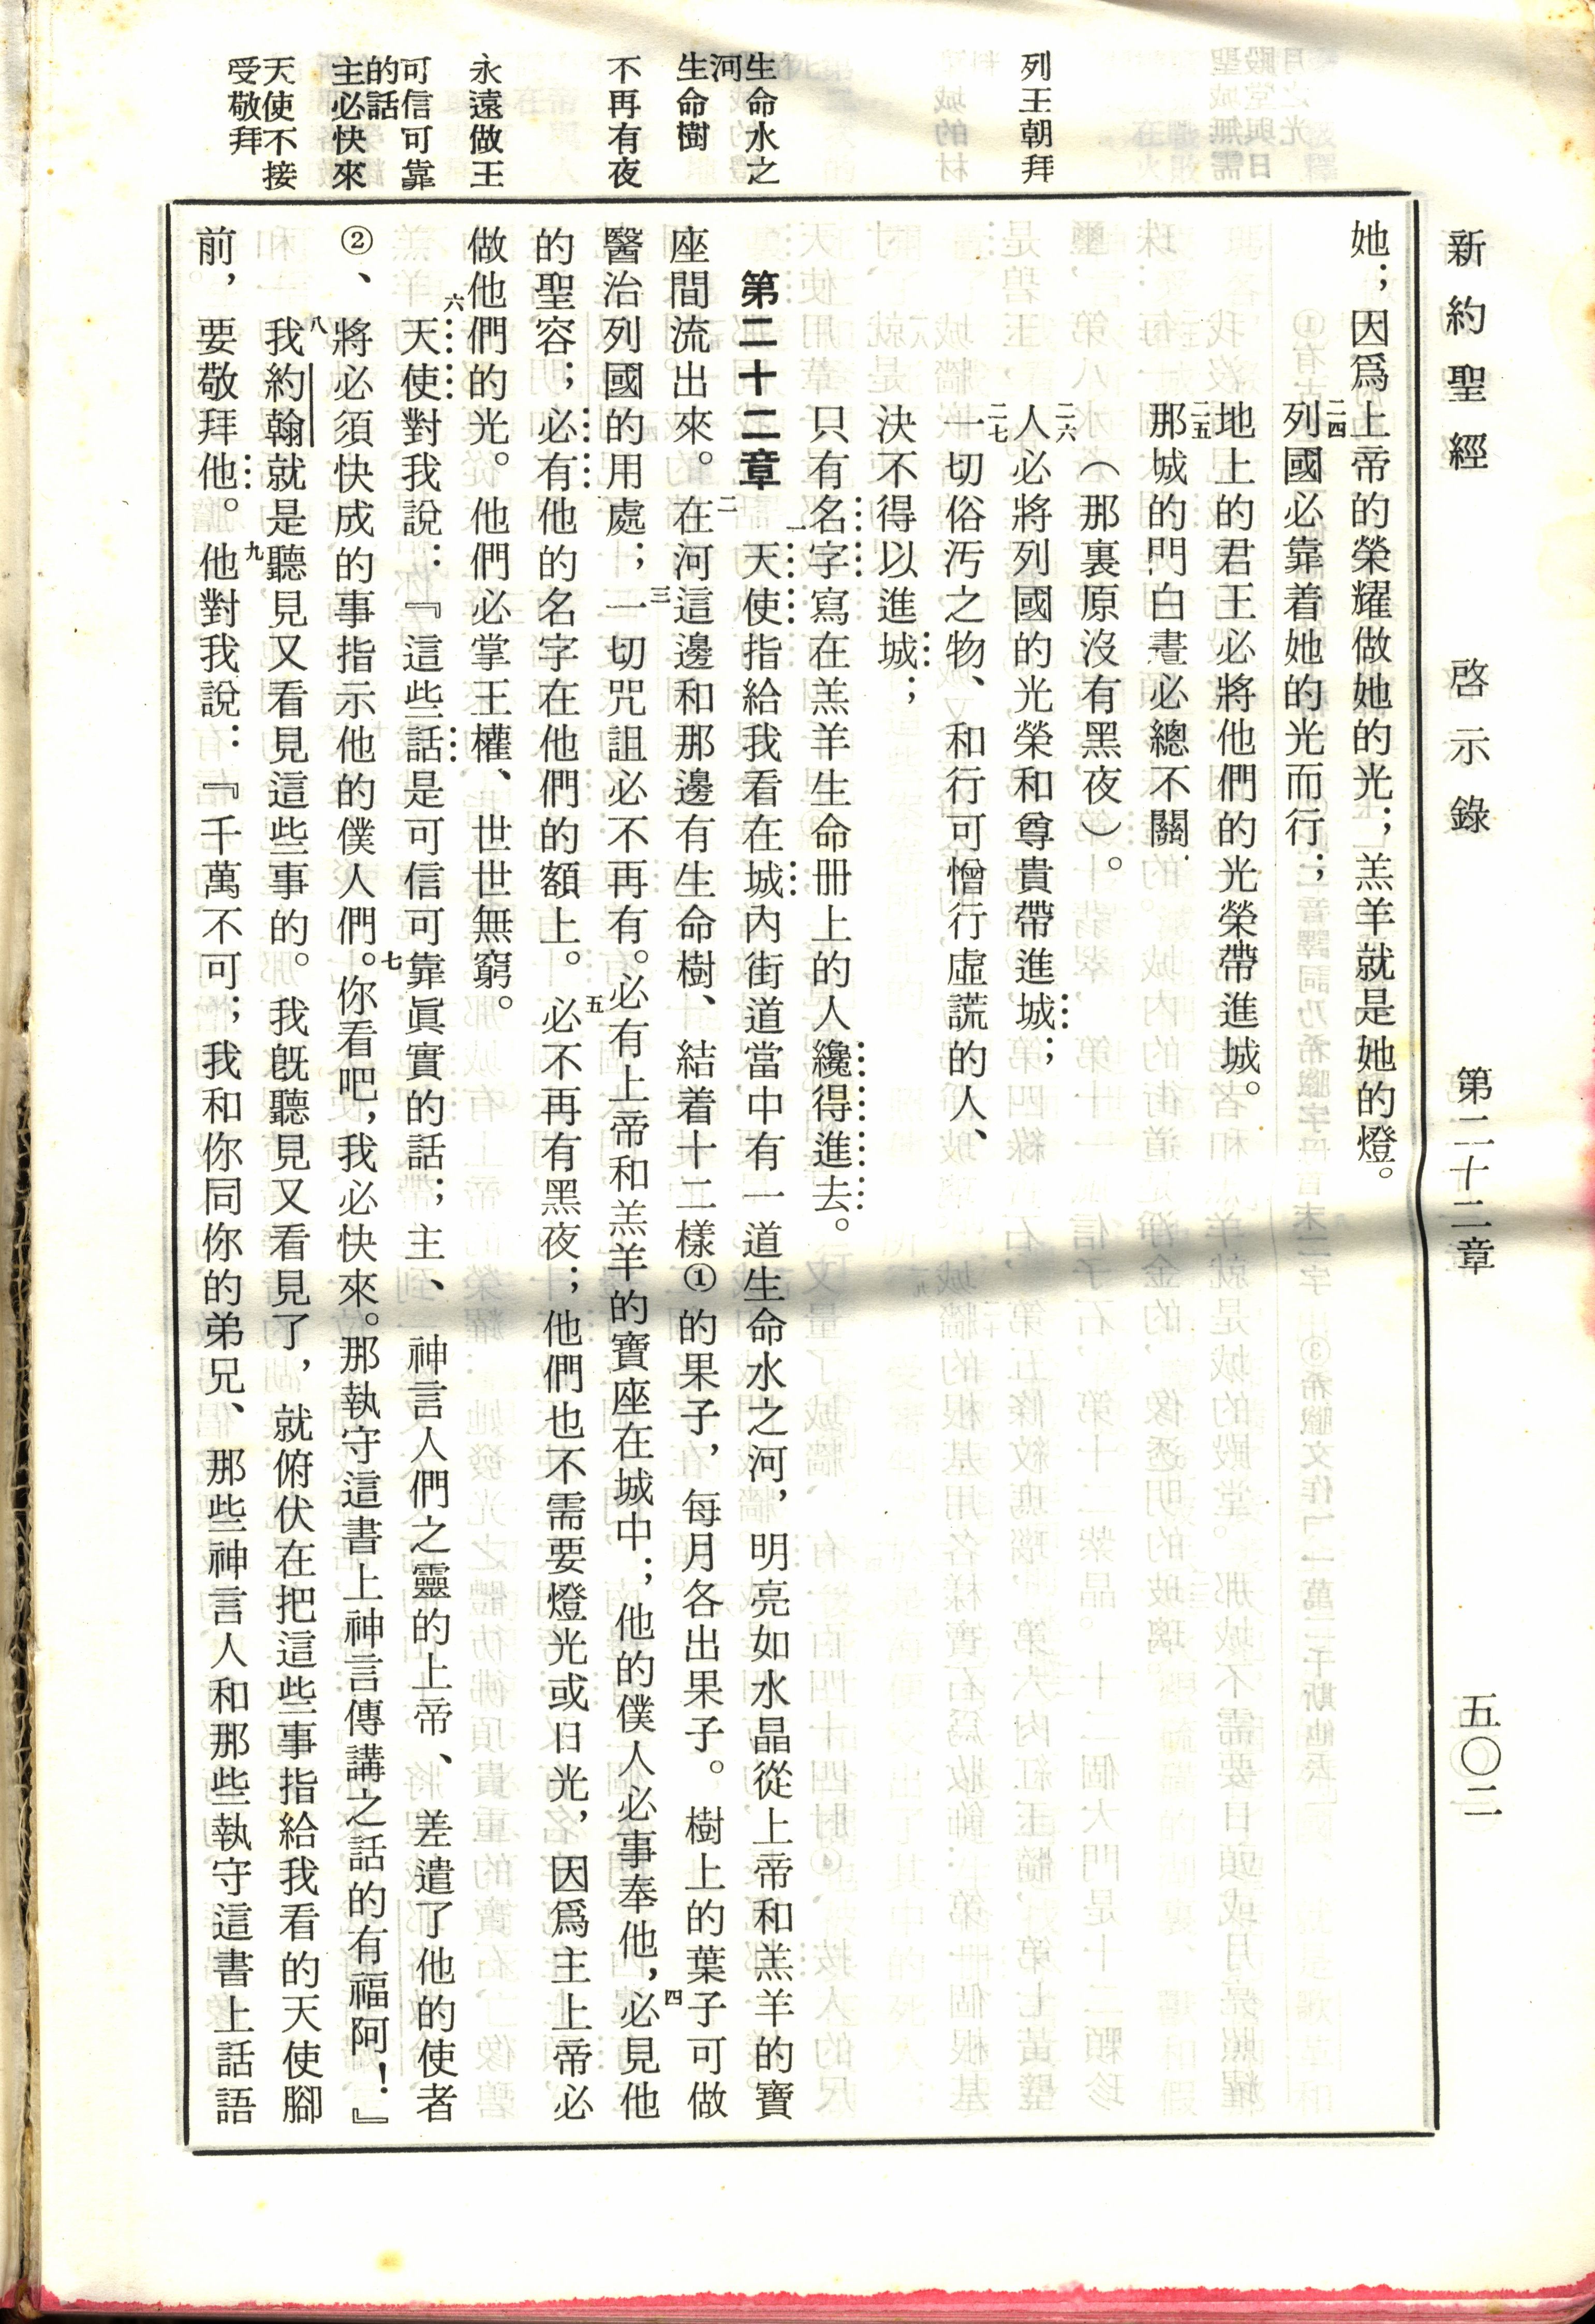 新約聖經　啓示錄　第二十二章　五〇二
列王朝拜
生命水之
河
生命樹
不再有夜
永遠做王
可信可靠
的話
主必快來
天使不接
受敬拜
她；因爲上帝的榮耀做她的光；羔羊就是她的燈。
二四列國必靠着她的光而行；
地上的君王必將他們的光榮帶進城。
二五那城的門白晝必總不關
（那裏原沒有黑夜）。
二六人必將列國的光榮和尊貴帶進城；
二七一切俗汚之物、和行可憎行虛謊的人、
決不得以進城；
只有名字寫在羔羊生命冊上的人纔得進去。
第二十二章　一天使指給我看在城內街道當中有一道生命水之河，明亮如水晶從上帝和羔羊的寶
座間流出來。二在河這邊和那邊有生命樹、結着十二樣①的果子，每月各出果子。樹上的葉子可做
醫治列國的用處；三一切咒詛必不再有。必有上帝和羔羊的寶座在城中；他的僕人必事奉他，四必見他
的聖容；必有他的名字在他們的額上。五必不再有黑夜；他們也不需要燈光或日光，因爲主上帝必
做他們的光。他們必掌王權、世世無窮。
六天使對我說：『這些話是可信可靠眞實的話；主、神言人們之靈的上帝、差遣了他的使者
②、將必須快成的事指示他的僕人們。七你看吧，我必快來。那執守這書上神言傳講之話的有福阿！』
八我約翰就是聽見又看見這些事的。我旣聽見又看見了，就俯伏在把這些事指給我看的天使腳
前，要敬拜他。九他對我說：『千萬不可；我和你同你的弟兄、那些神言人和那些執守這書上話語